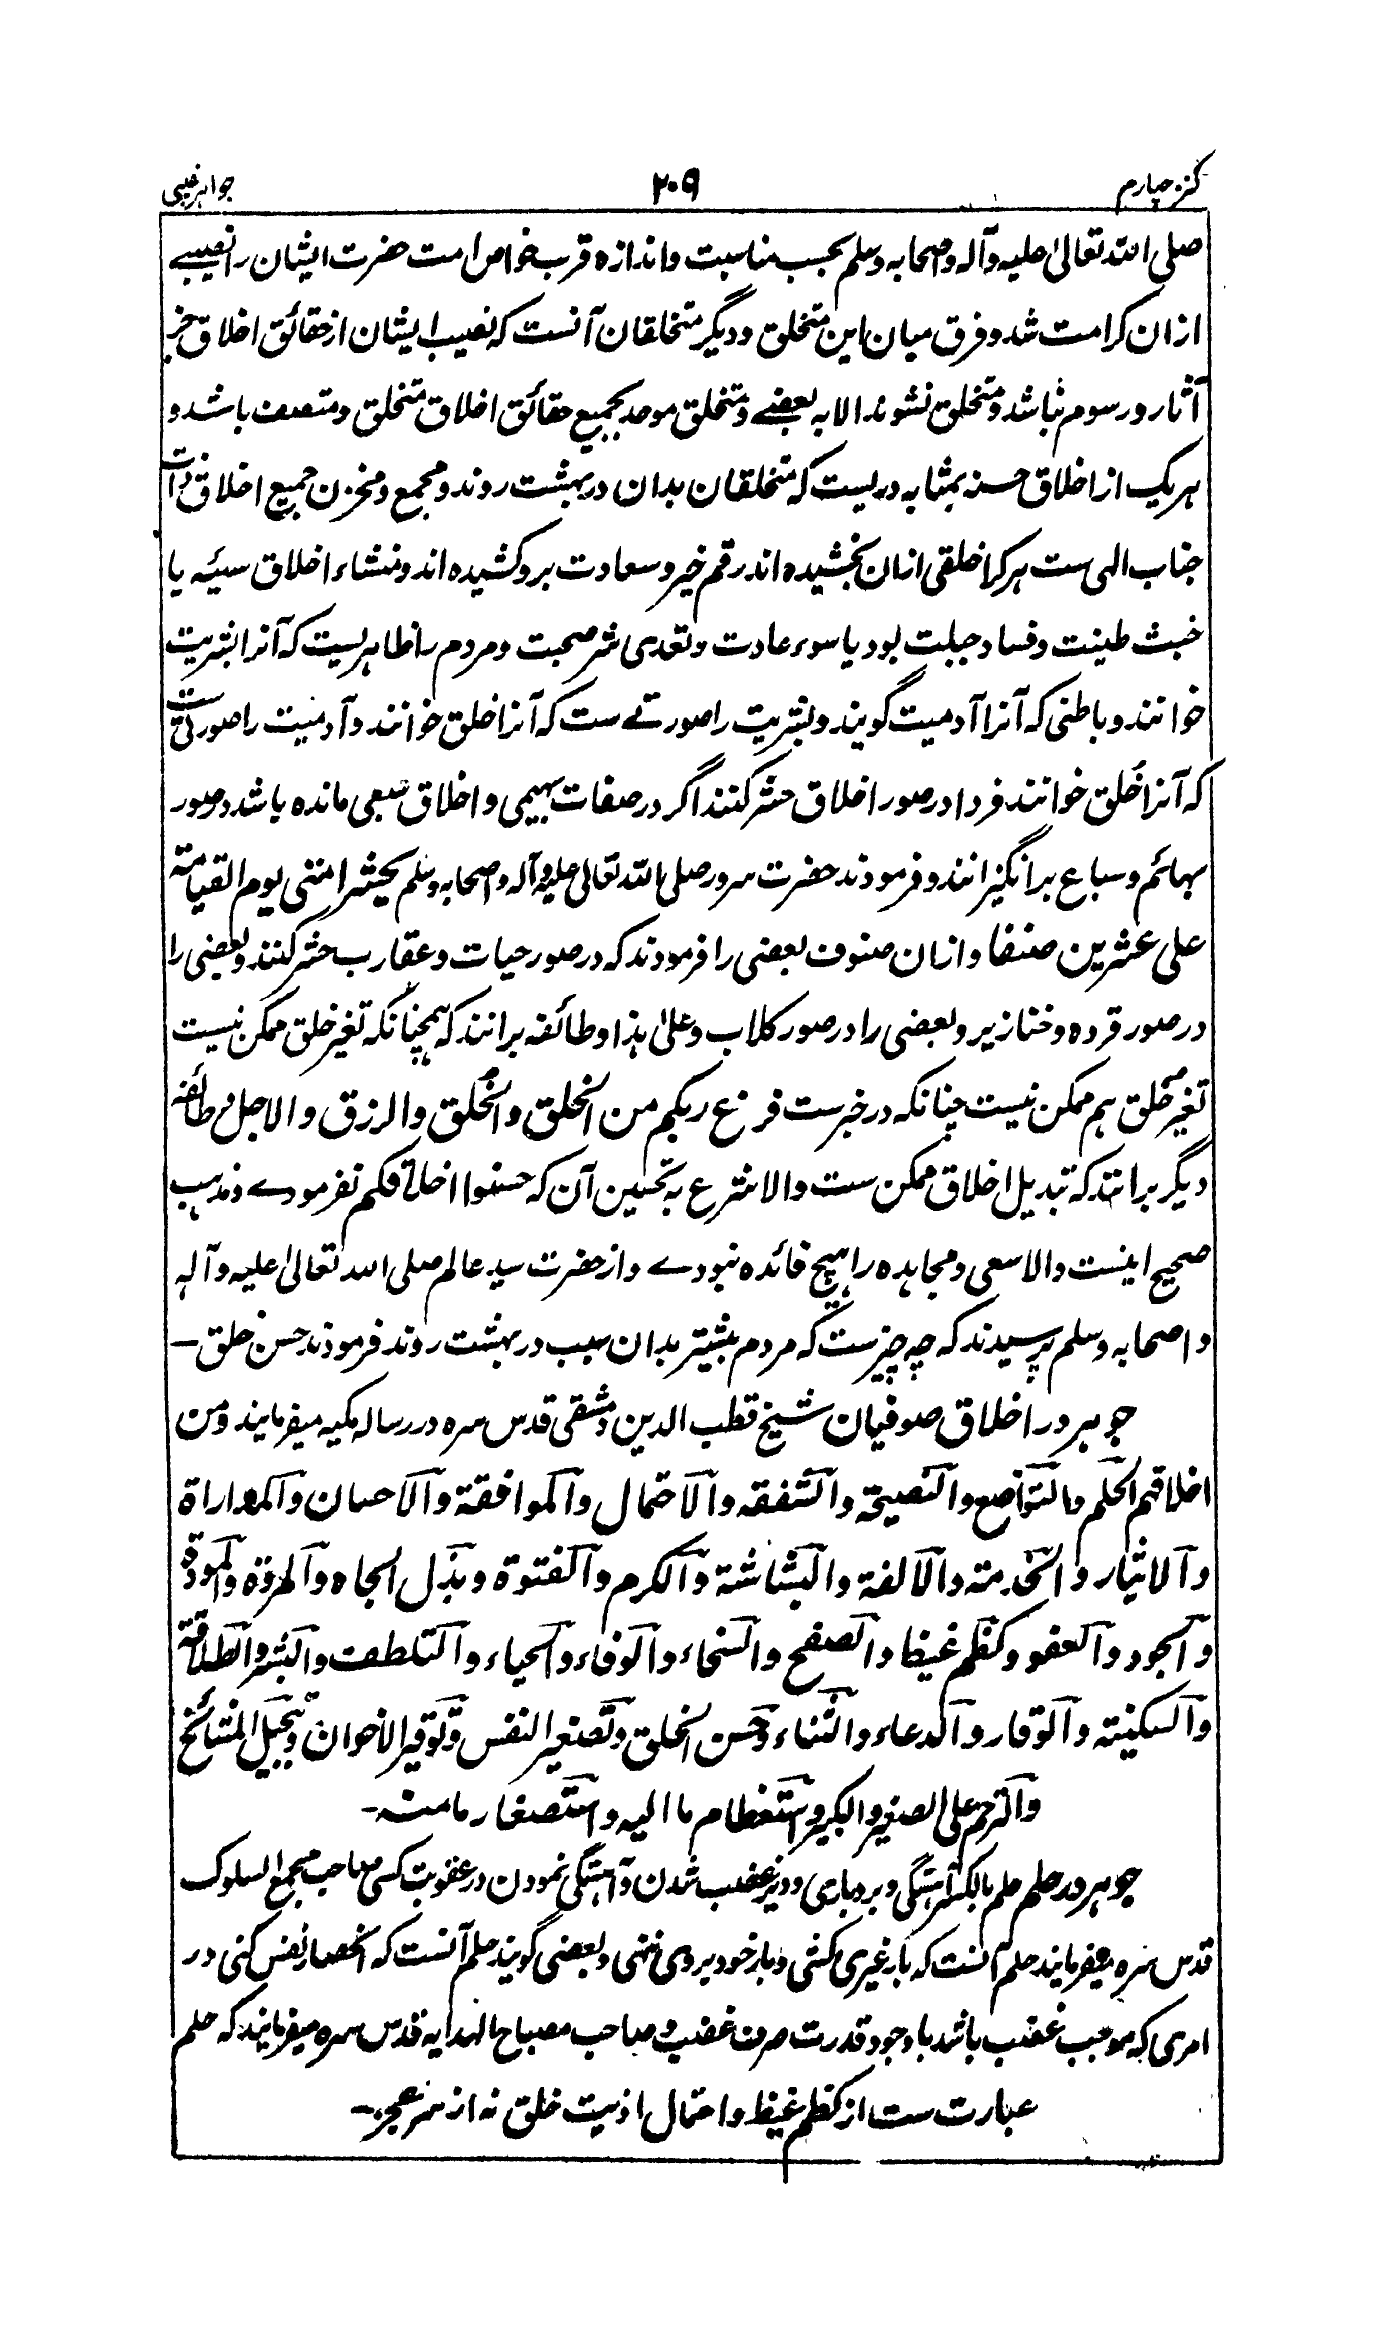 کنز چهارم
۲۰۹
جواهر غیبی
صلی الله تعالیٰ علیه وآله واصحابه وسلم بحسب مناسبت واندازه قرب خواص امت حضرت ایشان را نصیبے
ازان کرامت شد وفرق میان این متخلق ودیگر متخلقان آنست که نصیب ایشان از حقائق اخلاق جز
آثار ورسوم نباشد ومتخلق نشوند الا به بعضے ومتخلق موحد بجمیع حقائق اخلاق متخلق ومتصف باشد و
هریک از اخلاق حسنه بمثابه دریست که متخلقان بدان در بهشت روند ومجمع ومخزن جمیع اخلاق ذات
جناب الهی ست هر کرا خلقی ازان بخشیده اند رقم خیر وسعادت برو کشیده اند ومنشاء اخلاق سیئه یا
خبث طینت وفساد جبلت بود یا سوء عادت وتعدی شر صحبت ومردم را ظاهریست که آنرا بشریت
خوانند وباطنی که آنرا آدمیت گویند وبشریت را صورتے ست که آنرا خلق خوانند وآدمیت را صورتی ست
که آنرا خُلق خوانند فردا در صور اخلاق حشر کنند اگر در صفات بهیمی واخلاق سبعی مانده باشد در صور
بهائم وسباع برانگیزانند وفرمودند حضرت سرور صلی الله تعالی علیه وآله واصحابه وسلم یحشر امتی یوم القیامة
علی عشرین صنفا وازان صنوف بعضی را فرمودند که در صور حیات وعقارب حشر کنند وبعضی را
در صور قرده وخنازیر وبعضی را در صور کلاب وعلیٰ هذا وطائفه برانند که همچنانکه تغیر خلق ممکن نیست
تغیر خُلق هم ممکن نیست چنانکه در خبرست فرغ ربکم من الخلق والخُلق والرزق والاجل وطائفه
دیگر برانند که تبدیل اخلاق ممکن ست والا شرع به تحسین آن که حسنوا اخلاقکم نفرمودے ومذهب
صحیح اینست والا سعی ومجاهده را هیچ فائده نبودے واز حضرت سید عالم صلی الله تعالیٰ علیه وآله
واصحابه وسلم پرسیدند که چه چیزست که مردم بیشتر بدان سبب در بهشت روند فرمودند حسن خلق ـ
جوهر در اخلاق صوفیان شیخ قطب الدین دمشقی قدس سره در رساله مکیه میفرمایند ومن
اخلاقهم الحلم والتواضع والنصیحة والشفقه والاحتمال والموافقة والاحسان والمداراة
والایثار والخدمته والالفة والبشاشة والکرم والفتوة وبذل الجاه والمروة والمودة
والجود والعفو وکظم غیظ والصفح والسخاء والوفاء والحیاء والتلطف والبشر والطلاقة
والسکینته والوقار والدعاء والثناء وحسن الخلق وتصغیر النفس وتوقیر الاخوان وتبجیل المشائخ
والترحم علی الصغیر والکبیر واستعظام ما الیه واستصغار ما منه ـ
جوهر در حلم حلم بالکسر آهستگی وبردباری ودیر غضب شدن وآهستگی نمودن در عقوبت کسی صاحب مجمع السلوک
قدس سره میفرمایند حلم آنست که بار غیری کشی وبار خود بر وی ننهی وبعضی گویند حلم آنست که انحصار نفس کنی در
امری که موجب غضب باشد با وجود قدرت صرف غضب وصاحب مصباح الهدایه قدس سره میفرمایند که حلم
عبارت ست از کظم غیظ واحتمال اذیت خلق نه از سر عجز ـ